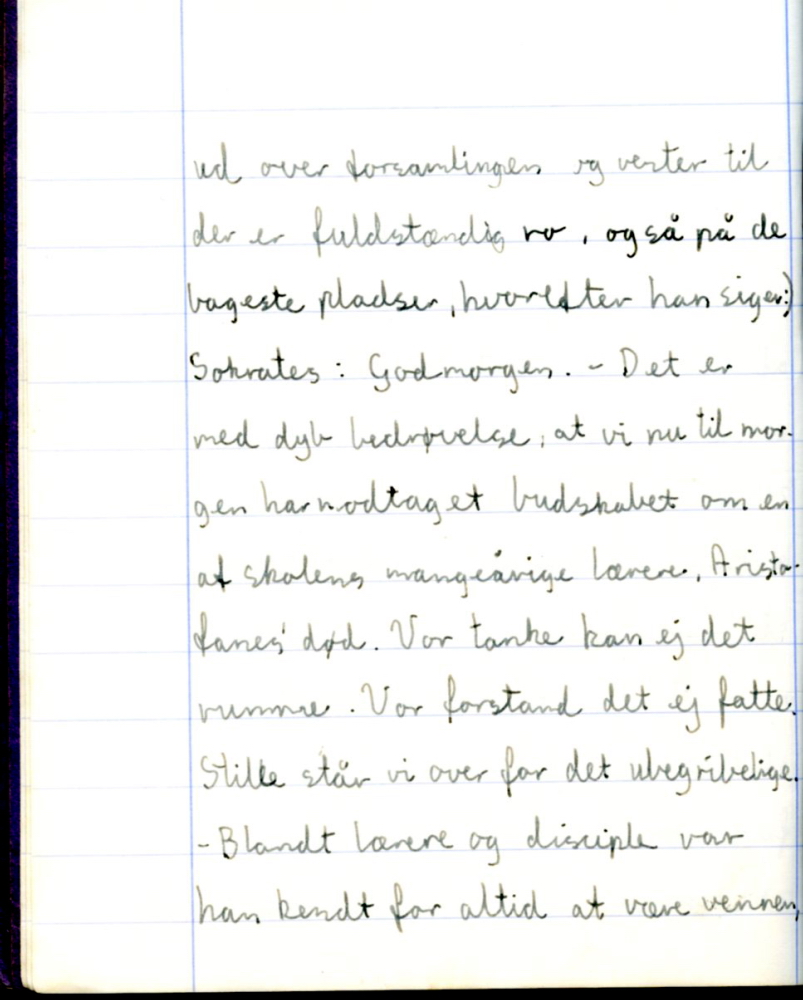 ud over forsamlingen og venter til
der er fuldstændig ro, også på de
bageste pladser, hvorefter han siger:)
Sokrates: Godmorgen. - Det er
med dyb bedrøvelse, at vi nu til mor-
gen har modtaget budskabet om en
af skolens mangeårige lærere, Aristo-
fanes' død. Vor tanke kan ej det
rumme. Vor forstand det ej fatte.
Stille står vi over for det ubegribelige.
- Blandt lærere og disciple var
han kendt for altid at være vennen,